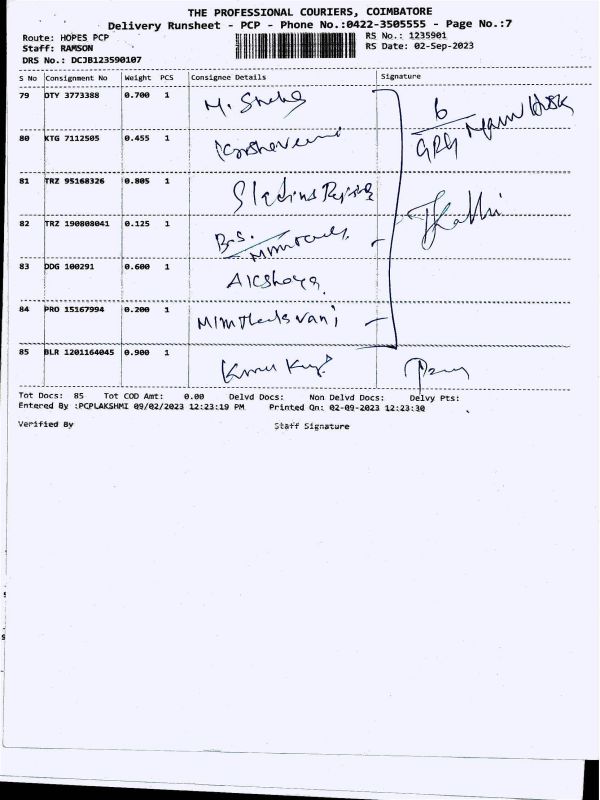 THE PROFESSIONAL COURIERS, COIMBATORE
Delivery Runsheet - PCP - Phone No.:0422-3505555 - Page No.:7
Route: HOPES PCP RS No.: 1235901
Staff: RAMSON RS Date: 02-Sep-2023
DRS No.: DCJB123590107
S No Consignment No Weight PCS Consignee Details Signature
79 OTY 3773388 0.700 1 M. Sneha
80 KTG 7112505 0.455 1
81 TRZ 95168326 0.805 1
82 TRZ 190808041 0.125 1 B.S.
83 DDG 100291 0.600 1 Akshaya.
84 PRO 15167994 0.200 1
85 BLR 1201164045 0.900 1
6
GRG Main
Tot Docs: 85 Tot COD Amt: 0.00 Delvd Docs: Non Delvd Docs: Delvy Pts:
Entered By :PCPLAKSHMI 09/02/2023 12:23:19 PM Printed On: 02-09-2023 12:23:30
Verified By Staff Signature